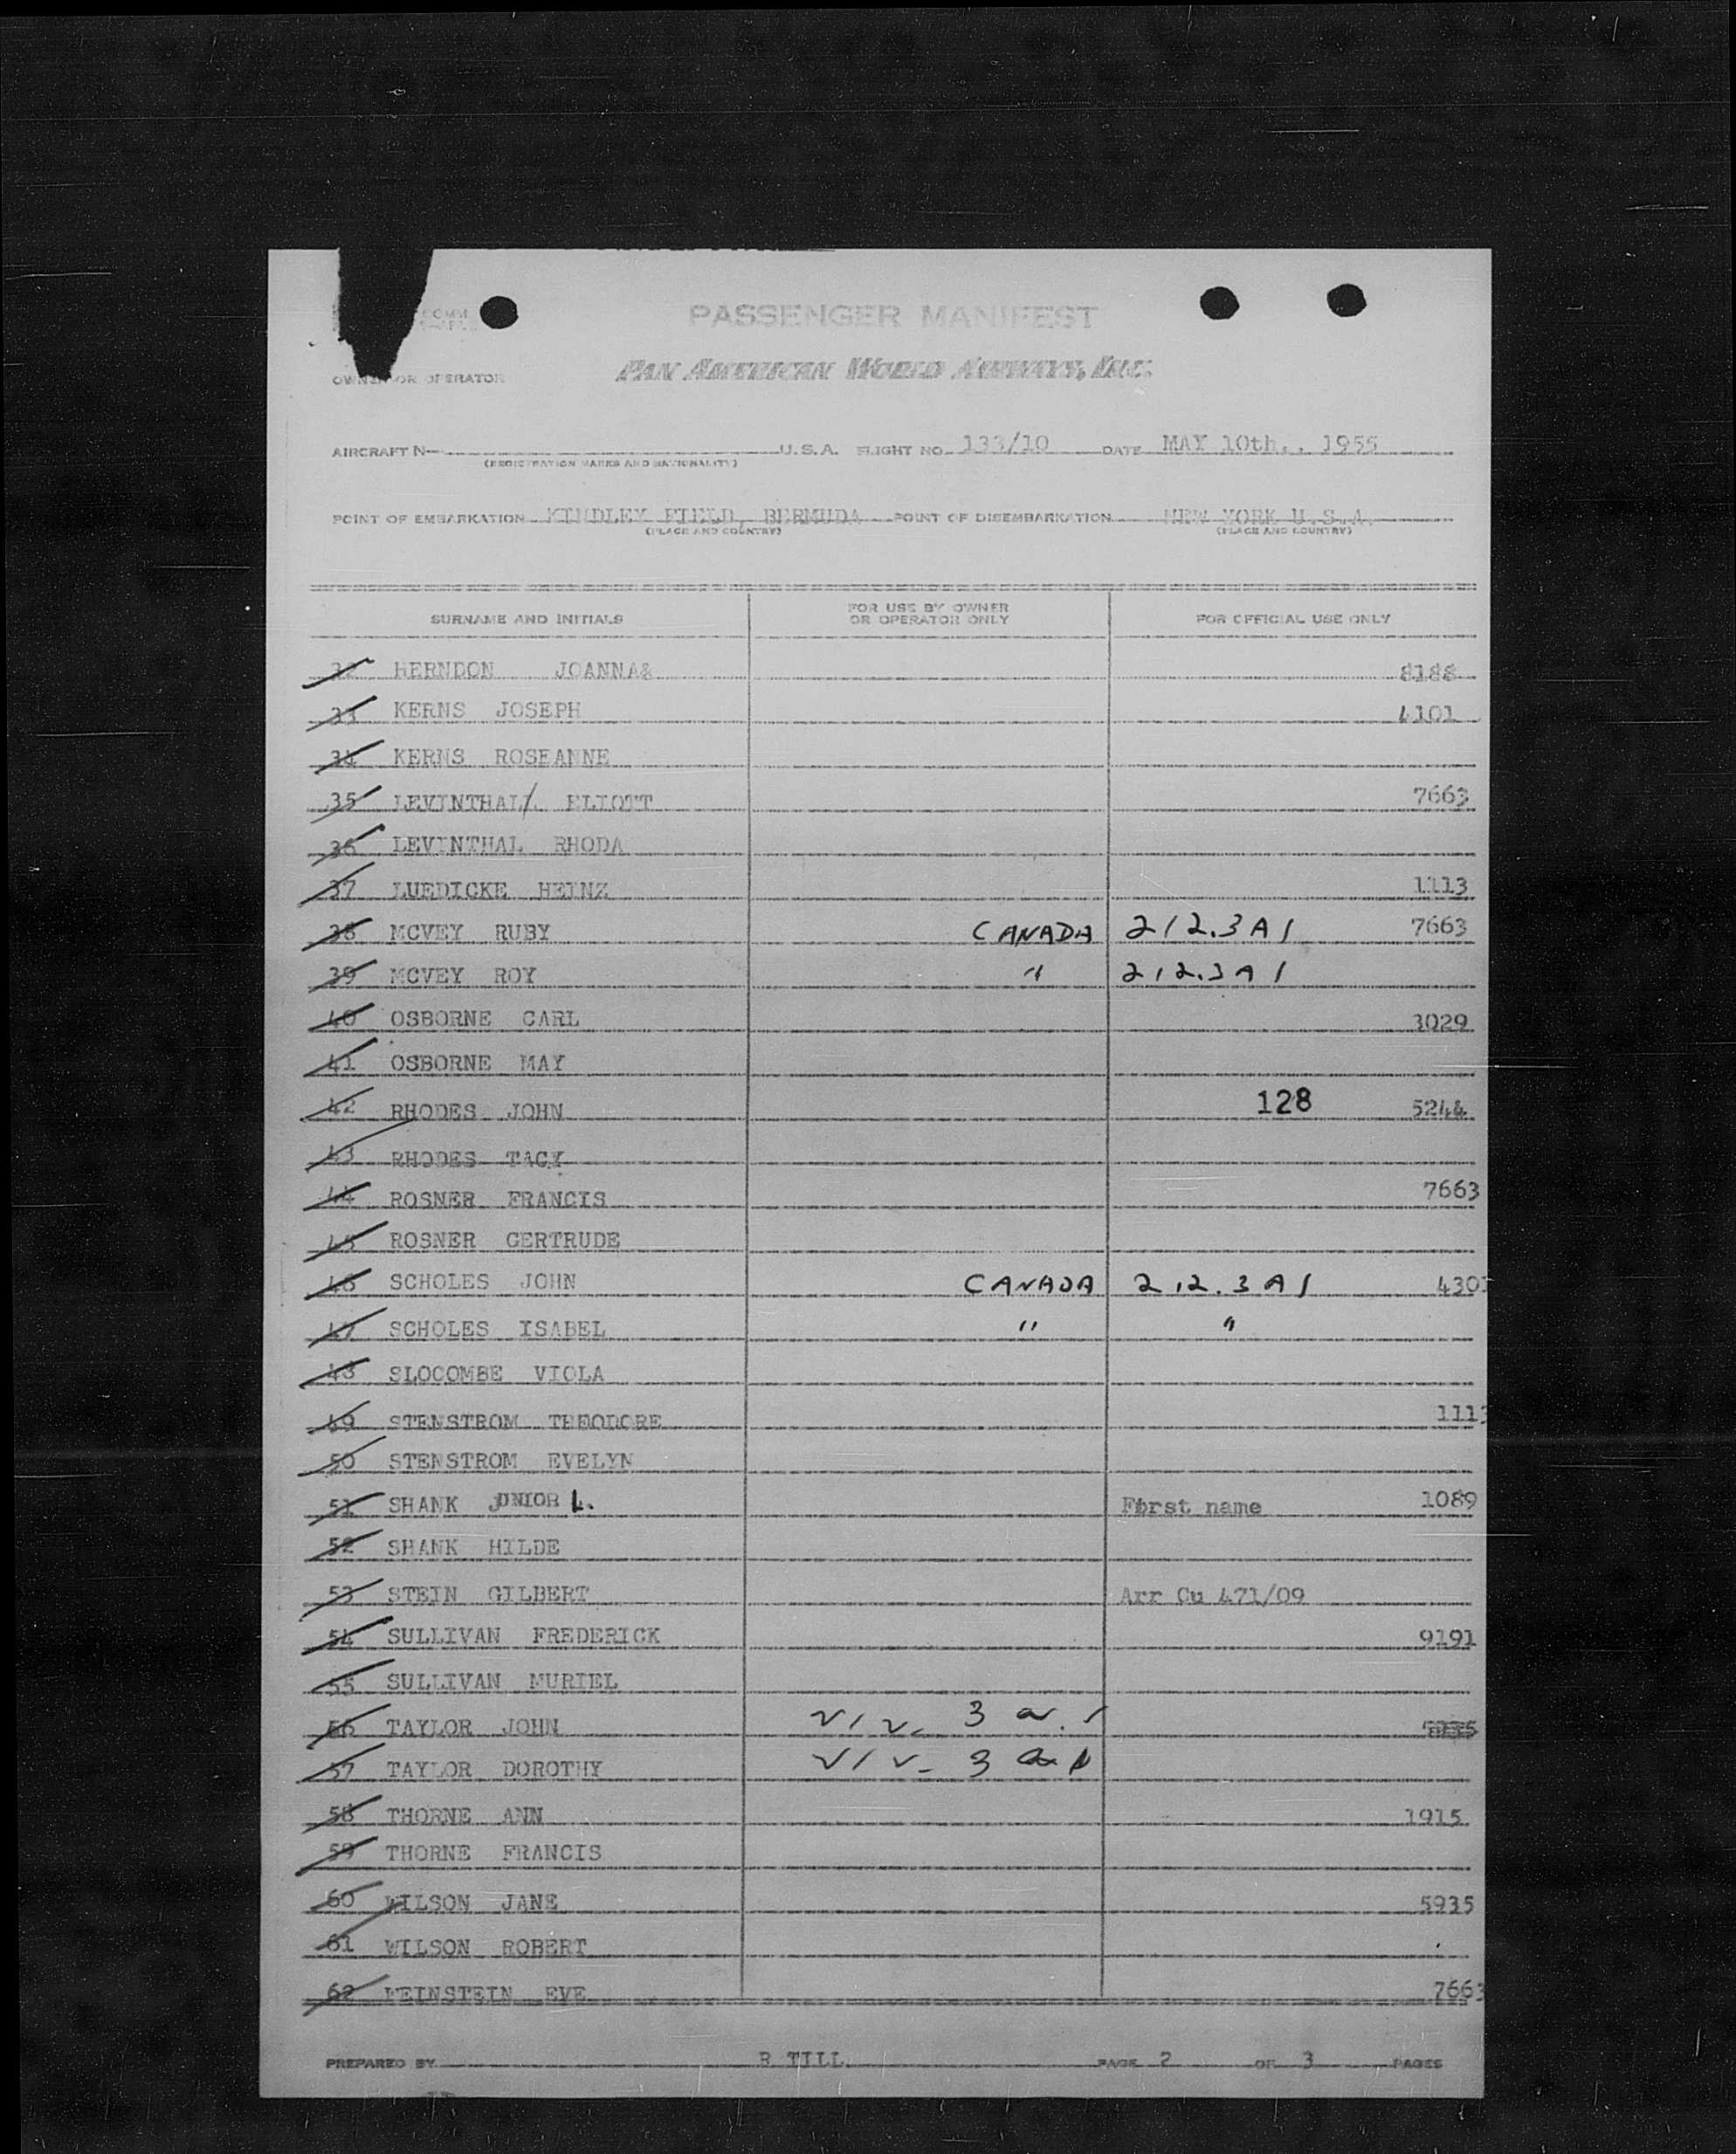 COMM
PASSENGER MANIFEST
OWNER OR OPERATOR
PAN AMERICAN WORLD AIRWAYS, INC.
AIRCRAFT N U.S.A. FLIGHT NO. 133/10 DATE MAY 10th., 1955
(REGISTRATION MARKS AND NATIONALITY)
POINT OF EMBARKATION KINDLEY FIELD, BERMUDA POINT OF DISEMBARKATION NEW YORK U.S.A.
(PLACE AND COUNTRY) (PLACE AND COUNTRY)
SURNAME AND INITIALS FOR USE BY OWNER OR OPERATOR ONLY FOR OFFICIAL USE ONLY
32 HERNDON JOANNA& 8188
33 KERNS JOSEPH 4101
34 KERNS ROSEANNE
35 LEVINTHAL/ ELIOTT 7663
36 LEVINTHAL RHODA
37 LUEDICKE HEINZ 1113
38 MCVEY RUBY CANADA 212.3A1 7663
39 MCVEY ROY " 212.3A1
40 OSBORNE CARL 3029
41 OSBORNE MAY
42 RHODES JOHN 128 5244
43 RHODES TACY
44 ROSNER FRANCIS 7663
45 ROSNER GERTRUDE
46 SCHOLES JOHN CANADA 212.3A1 4301
47 SCHOLES ISABEL " "
48 SLOCOMBE VIOLA
49 STENSTROM THEODORE 1113
50 STENSTROM EVELYN
51 SHANK JUNIOR L. First name 1089
52 SHANK HILDE
53 STEIN GILBERT Arr Cu 471/09
54 SULLIVAN FREDERICK 9191
55 SULLIVAN MURIEL
56 TAYLOR JOHN 212. 3 a. 1
57 TAYLOR DOROTHY 212. 3 a 1
58 THORNE ANN 1915
59 THORNE FRANCIS
60 WILSON JANE 5935
61 WILSON ROBERT
62 WEINSTEIN EVE 7663
PREPARED BY R TILL PAGE 2 OF 3 PAGES